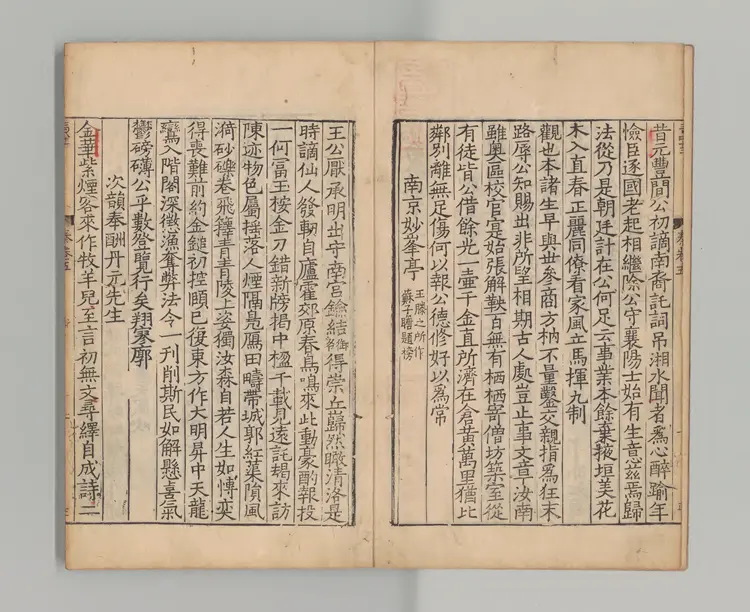 昔元豐間公初謫南裔託詞弔湘水聞者爲心醉踰年
憸臣逐國老起相繼除公守襄陽士始有生意茲焉歸
法從乃是朝廷計在公何足云事業本餘棄掖垣美花
木入直春正麗同僚看家風立馬揮九制
觀也本諸生早與世參商方枘不量鑿交親指爲狂末
路辱公知賜出非所望相期古人處豈止事文章汝南
雖奧區校官寔始張解鞅百無有栖栖寄僧坊築室從
有徒皆公借餘光一壷千金直所濟在倉黃萬里猶比
鄰別離無足傷何以報公德修好以爲常
南京妙峯亭
王勝之所作
蘇子瞻題榜
王公厭承明出守南宮鑰結御名得崇丘巋然瞰清洛是
時謫仙人發軔自廬霍郊原春鳥鳴來此動豪酌報投
一何富玉桉金刀錯新牓揭中楹千載見遠託朅來訪
陳迹物色屬搖落人煙隔鳧鴈田疇帶城郭紅蕖隕風
漪砂礫卷飛籜青青陵上姿獨汝森自若人生如愽奕
得喪難前約金鎚初控頤已復東方作大明昇中天龍
鸞入階閣深懲漁奪弊法令一刊削斯民如解懸喜氣
鬱磅礴公乎數登覽行矣翔寥廓
次韻奉酬丹元先生
金華紫煙客來作牧羊兒至言初無文尋繹自成詩二